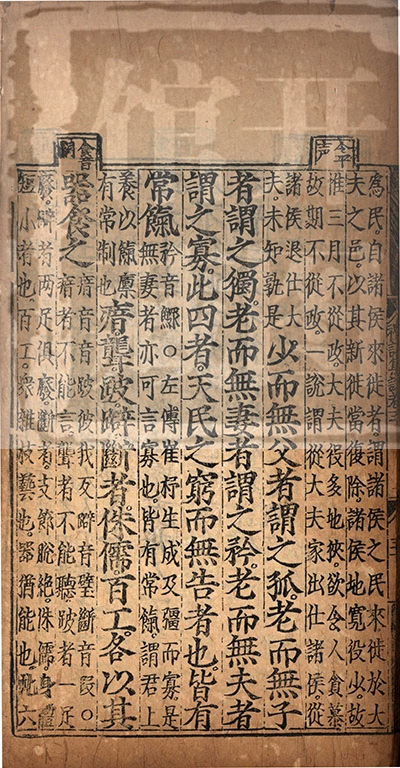 令平声
為民。自諸侯來徙者謂諸侯之民來徙於大
夫之邑。以其新徙當復除諸侯地寬役少。故
惟三月不從政。大夫役多地狹。欲令人貪慕
故期不從政。一說謂從大夫家出仕諸侯。從
諸侯退仕大
夫。未知孰是
少而無父者謂之孤。老而無子
者謂之獨。老而無妻者謂之矜。老而無夫者
謂之寡。此四者。天民之窮而無告者也。皆有
常餼
矜音鰥○左傳崔杼生成及彊而寡是
無妻者亦可言寡也皆有常餼。謂君上
養以餼廩
有常制也
瘖聾跛躃斷者。侏儒百工。各以其
食音嗣
器食之
瘖音音跛彼我反躃音壁斷音段○
瘖者不能言聾者不能聽跛者一足
廢。躃者两足俱廢斷者。支節脫絶。侏儒。身體
短小者也。百工。衆雜技藝也。器猶能也。此六